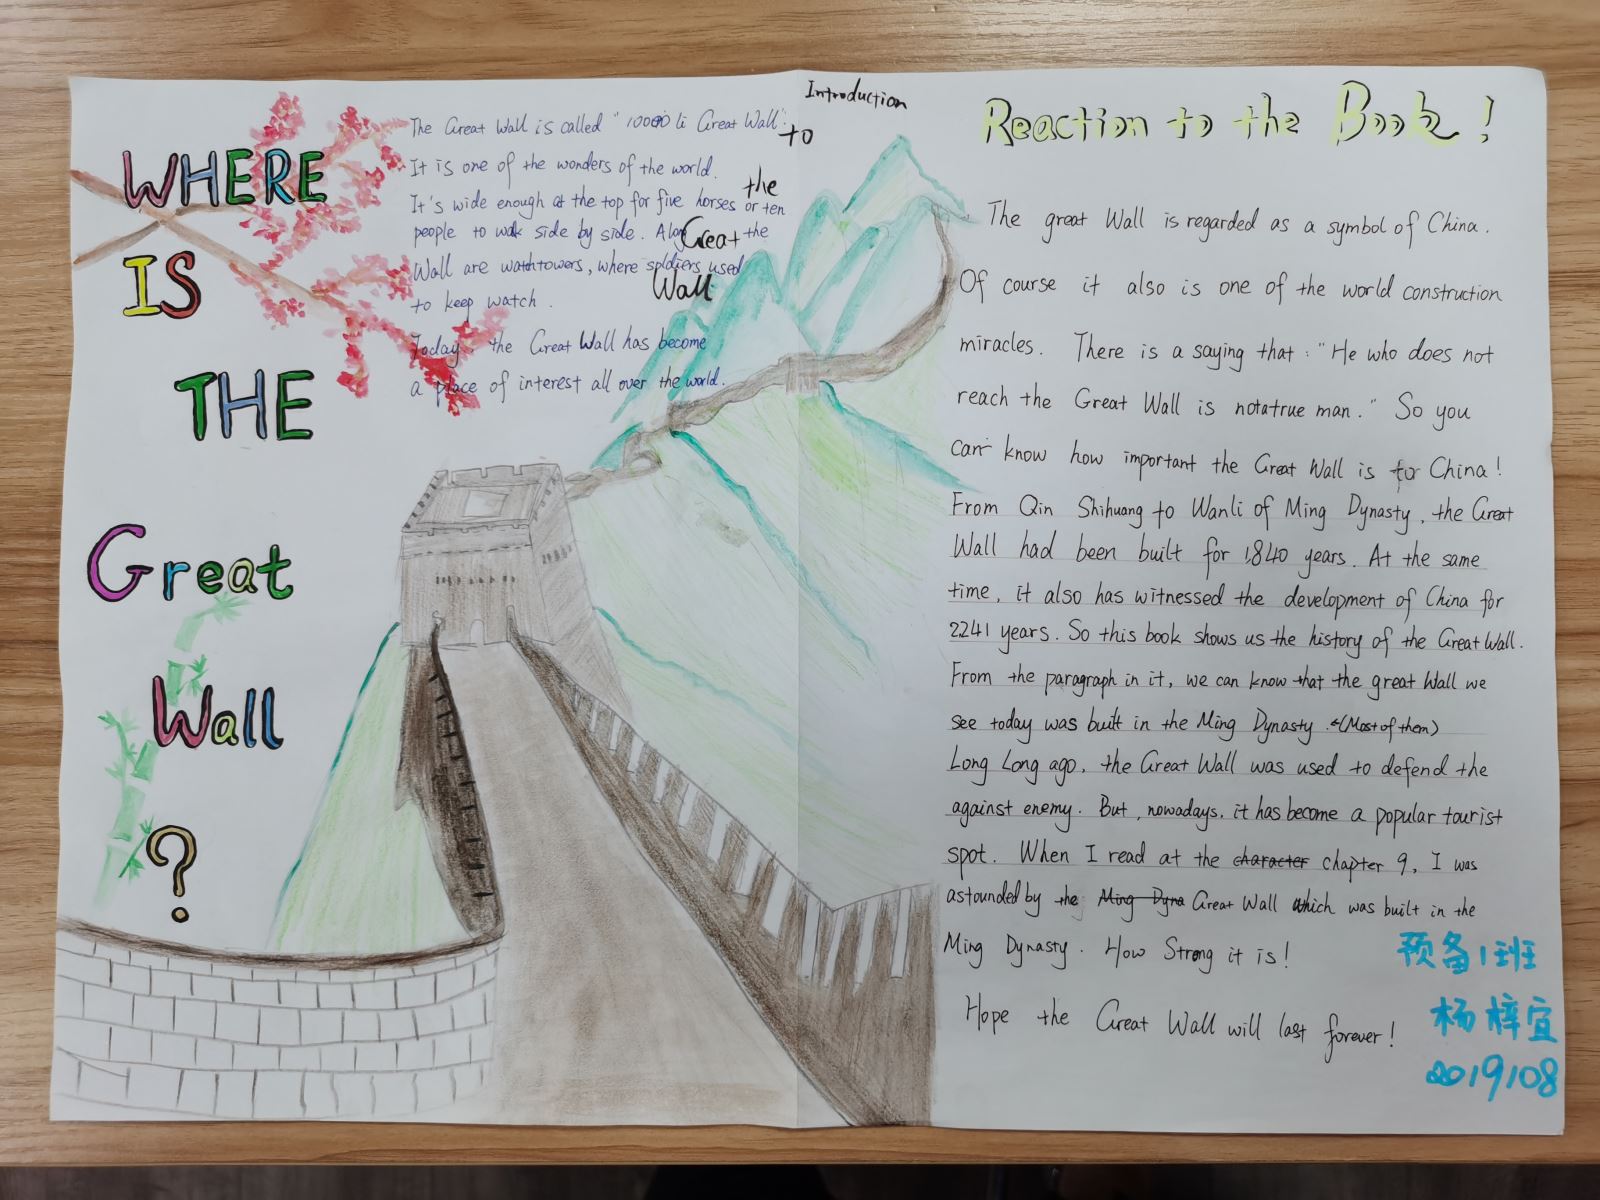 WHERE
IS
THE
Great
Wall
?
Introduction
to
the
Great
Wall
The Great Wall is called "10000 li Great Wall".
It is one of the wonders of the world.
It's wide enough at the top for five horses or ten
people to walk side by side. Along the
Wall are watchtowers, where soldiers used
to keep watch.
Today, the Great Wall has become
a place of interest all over the world.
Reaction to the Book!
The great Wall is regarded as a symbol of China.
Of course it also is one of the world construction
miracles. There is a saying that: "He who does not
reach the Great Wall is notatrue man." So you
can know how important the Great Wall is to China!
From Qin Shihuang to Wanli of Ming Dynasty, the Great
Wall had been built for 1,840 years. At the same
time, it also has witnessed the development of China for
2241 years. So this book shows us the history of the Great Wall.
From the paragraph in it, we can know that the great Wall we
see today was built in the Ming Dynasty. (Most of them)
Long Long ago, the Great Wall was used to defend the
against enemy. But, nowadays, it has become a popular tourist
spot. When I read at the character chapter 9, I was
astounded by the Ming Dyna Great Wall which was built in the
Ming Dynasty. How Strong it is!
Hope the Great Wall will last forever!
预备1班
杨梓宜
2019108